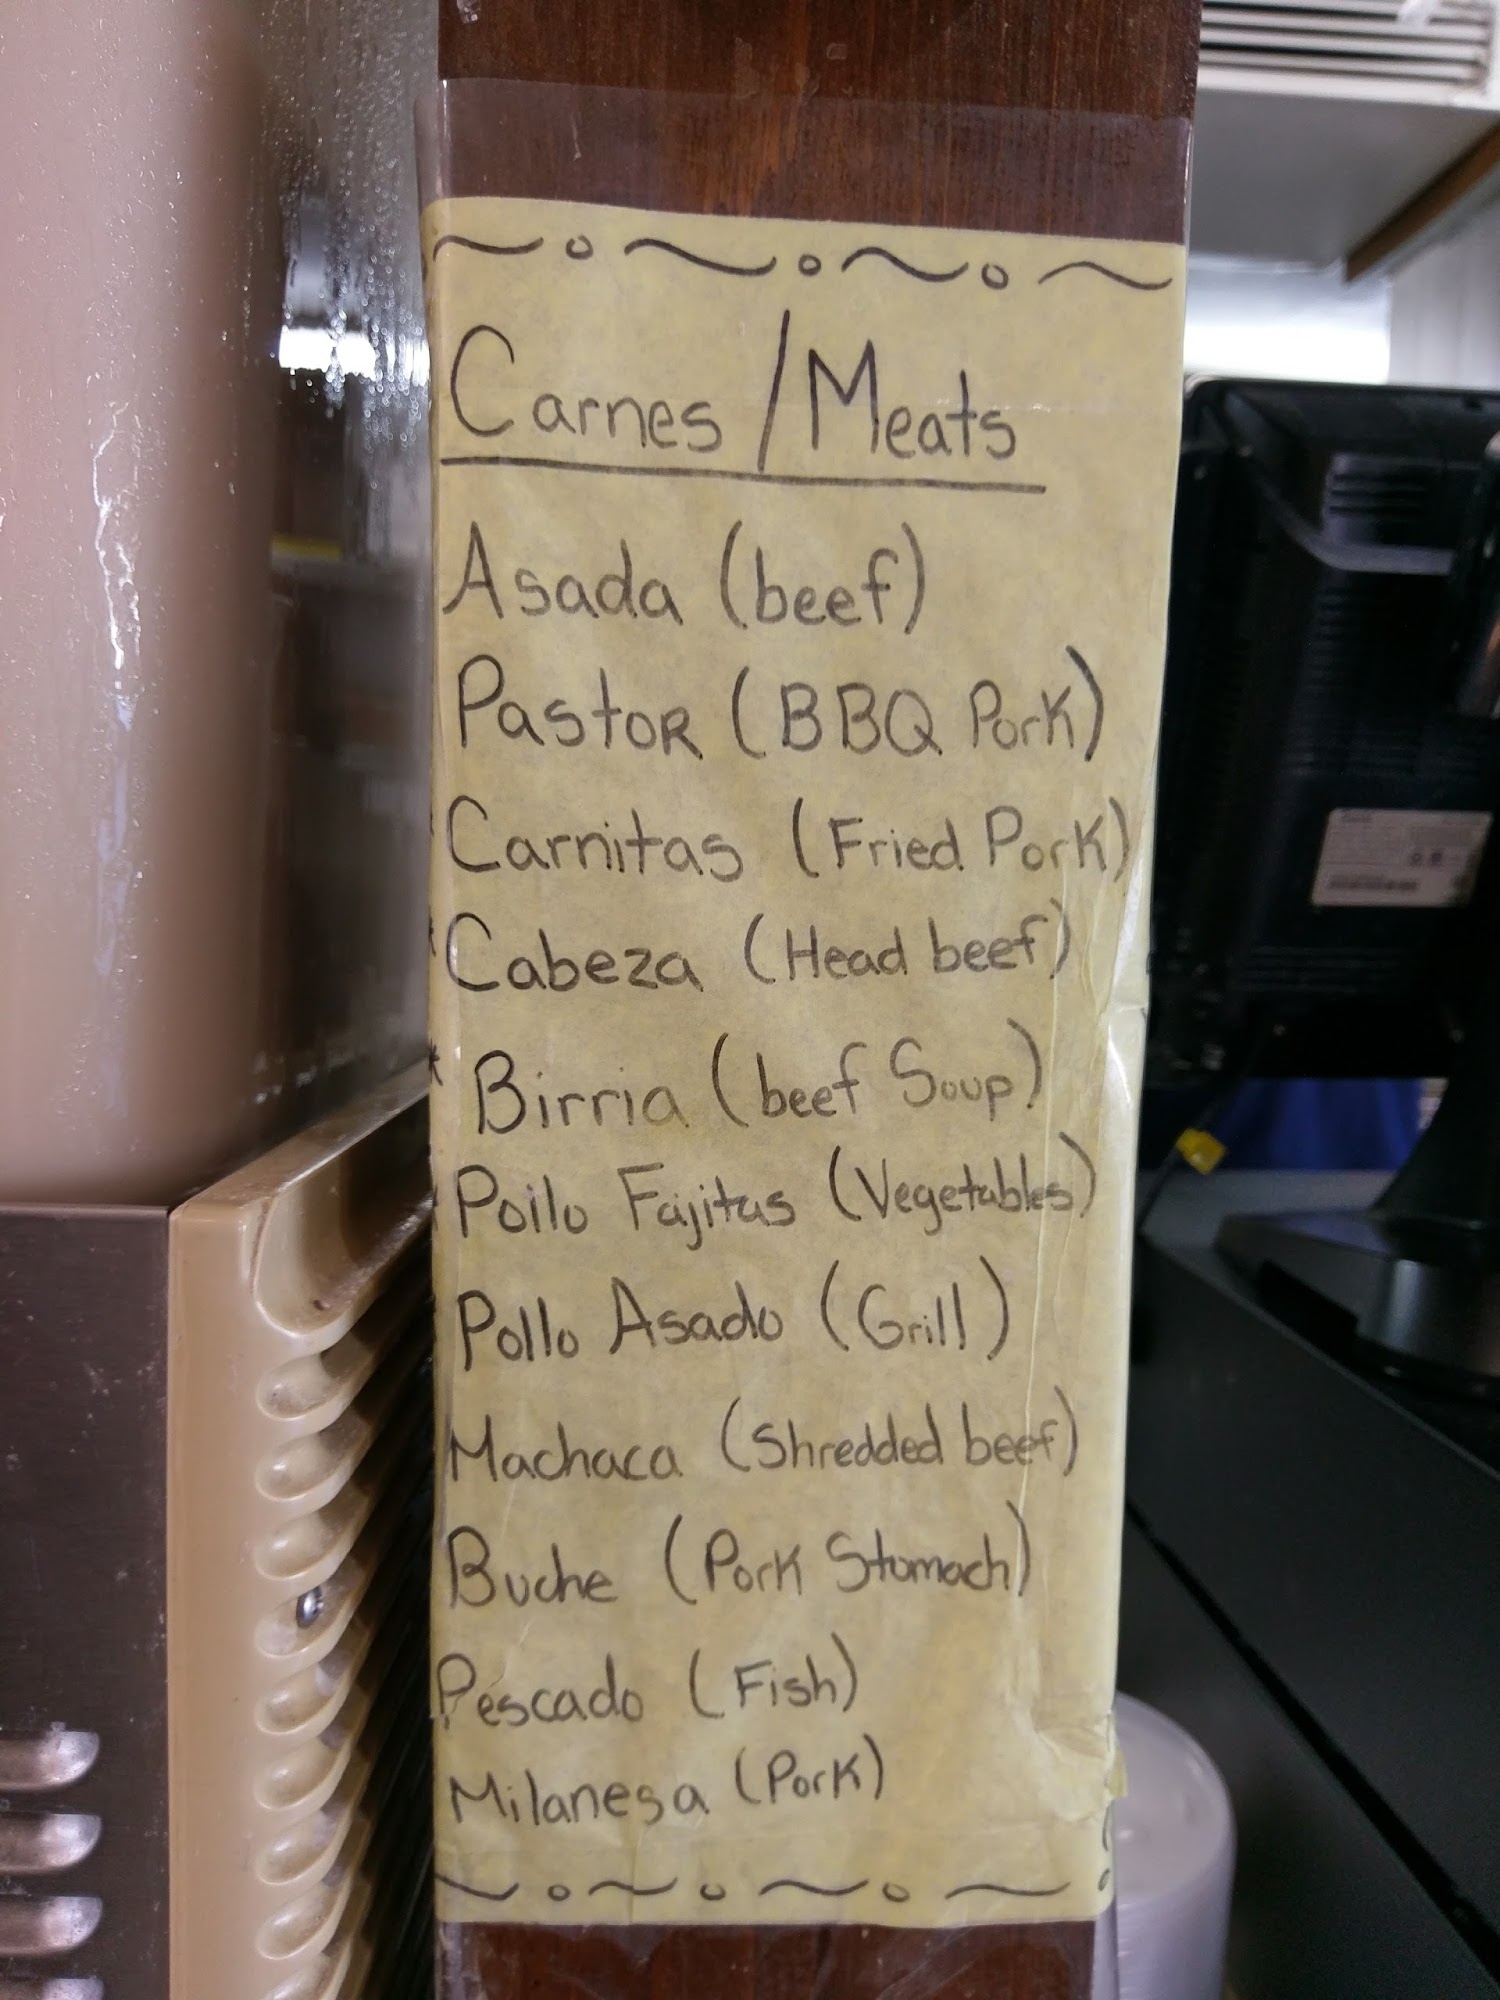 Carnes / Meats
Asada (beef)
Pastor (BBQ Pork)
Carnitas (Fried Pork)
Cabeza (Head beef)
* Birria (beef Soup)
Pollo Fajitas (Vegetables)
Pollo Asado (Grill)
Machaca (Shredded beef)
Buche (Pork Stomach)
Pescado (Fish)
Milanesa (Pork)